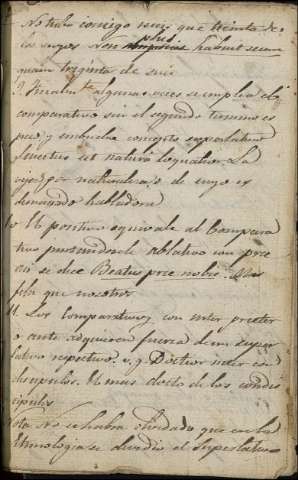 No traiba conmigo mas que treinta de
los suyos Non plus habuit secum
quam triginta de suis
9. Finalm.te algunas veces se emplea el
comparativo sin el segundo termino es
preso, y embuelve concepto superlativo
Senectus est natura loquatior La
vejez por naturaleza, o de suyo es
demasiado habladora
10 El positivo equivale al Compara
tivo poniendole ablativo con præ
asi se dice Beatus præ nobis. Mas
feliz que nosotros
11. Los comparativos con inter præter
o ante adquieren fuerza de un super
lativo respectivo. v. g. Doctior inter con
discipulos. El mas docto de los condis
cipulos
Nota No se habra olvidado que en la
Etimologia se dividio el superlativo